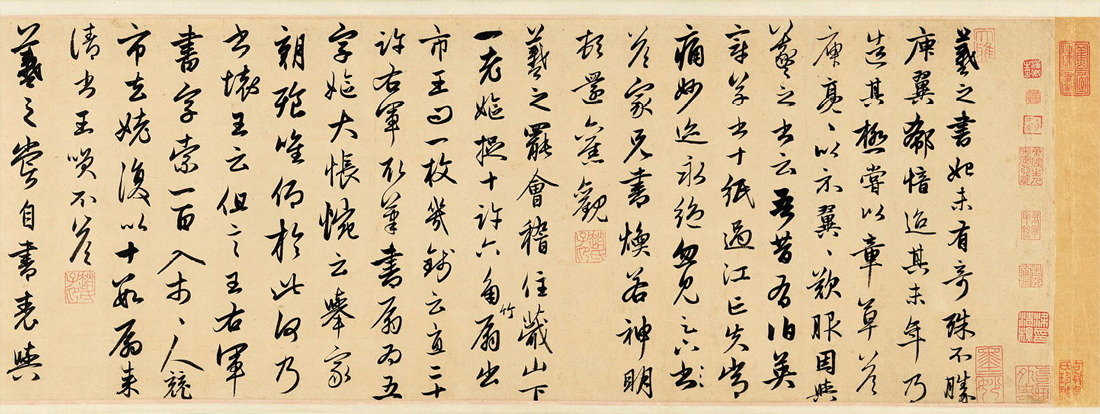 羲之書初未有奇殊不勝
庾翼郗愔迨其末年乃
造其極嘗以章草答
庾亮亮以示翼翼歎服因與
羲之書云吾昔有伯英
章草書十紙過江亡失常
痛妙迹永絕忽見足下書
答家兄書煥若神明
頓還舊觀
羲之罷會稽住蕺山下
一老嫗捉十許六角竹扇出
市王問一枚幾錢云直二十
許右軍取筆書扇為五
字嫗大悵惋云舉家
朝飱唯仰於此何乃
書壞王云但言王右軍
書字索一百入市市人競
市去姥復以十數扇來
請書王笑不答
羲之嘗自書表與
趙氏子昂
趙氏子昂